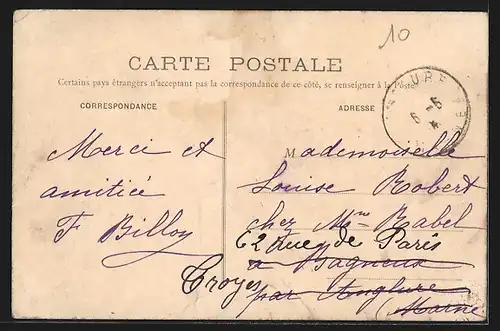 10
CARTE POSTALE
Certains pays étrangers n'acceptant pas la correspondance de ce côté, se renseigner à la Poste
CORRESPONDANCE
ADRESSE
Merci et
amitiée
F. Billoy
Mademoiselle
Louise Robert
chez Mme Babel
62 Rue de Paris
à Bagneux
Troyes
par Anglure
(Marne
6 - 5